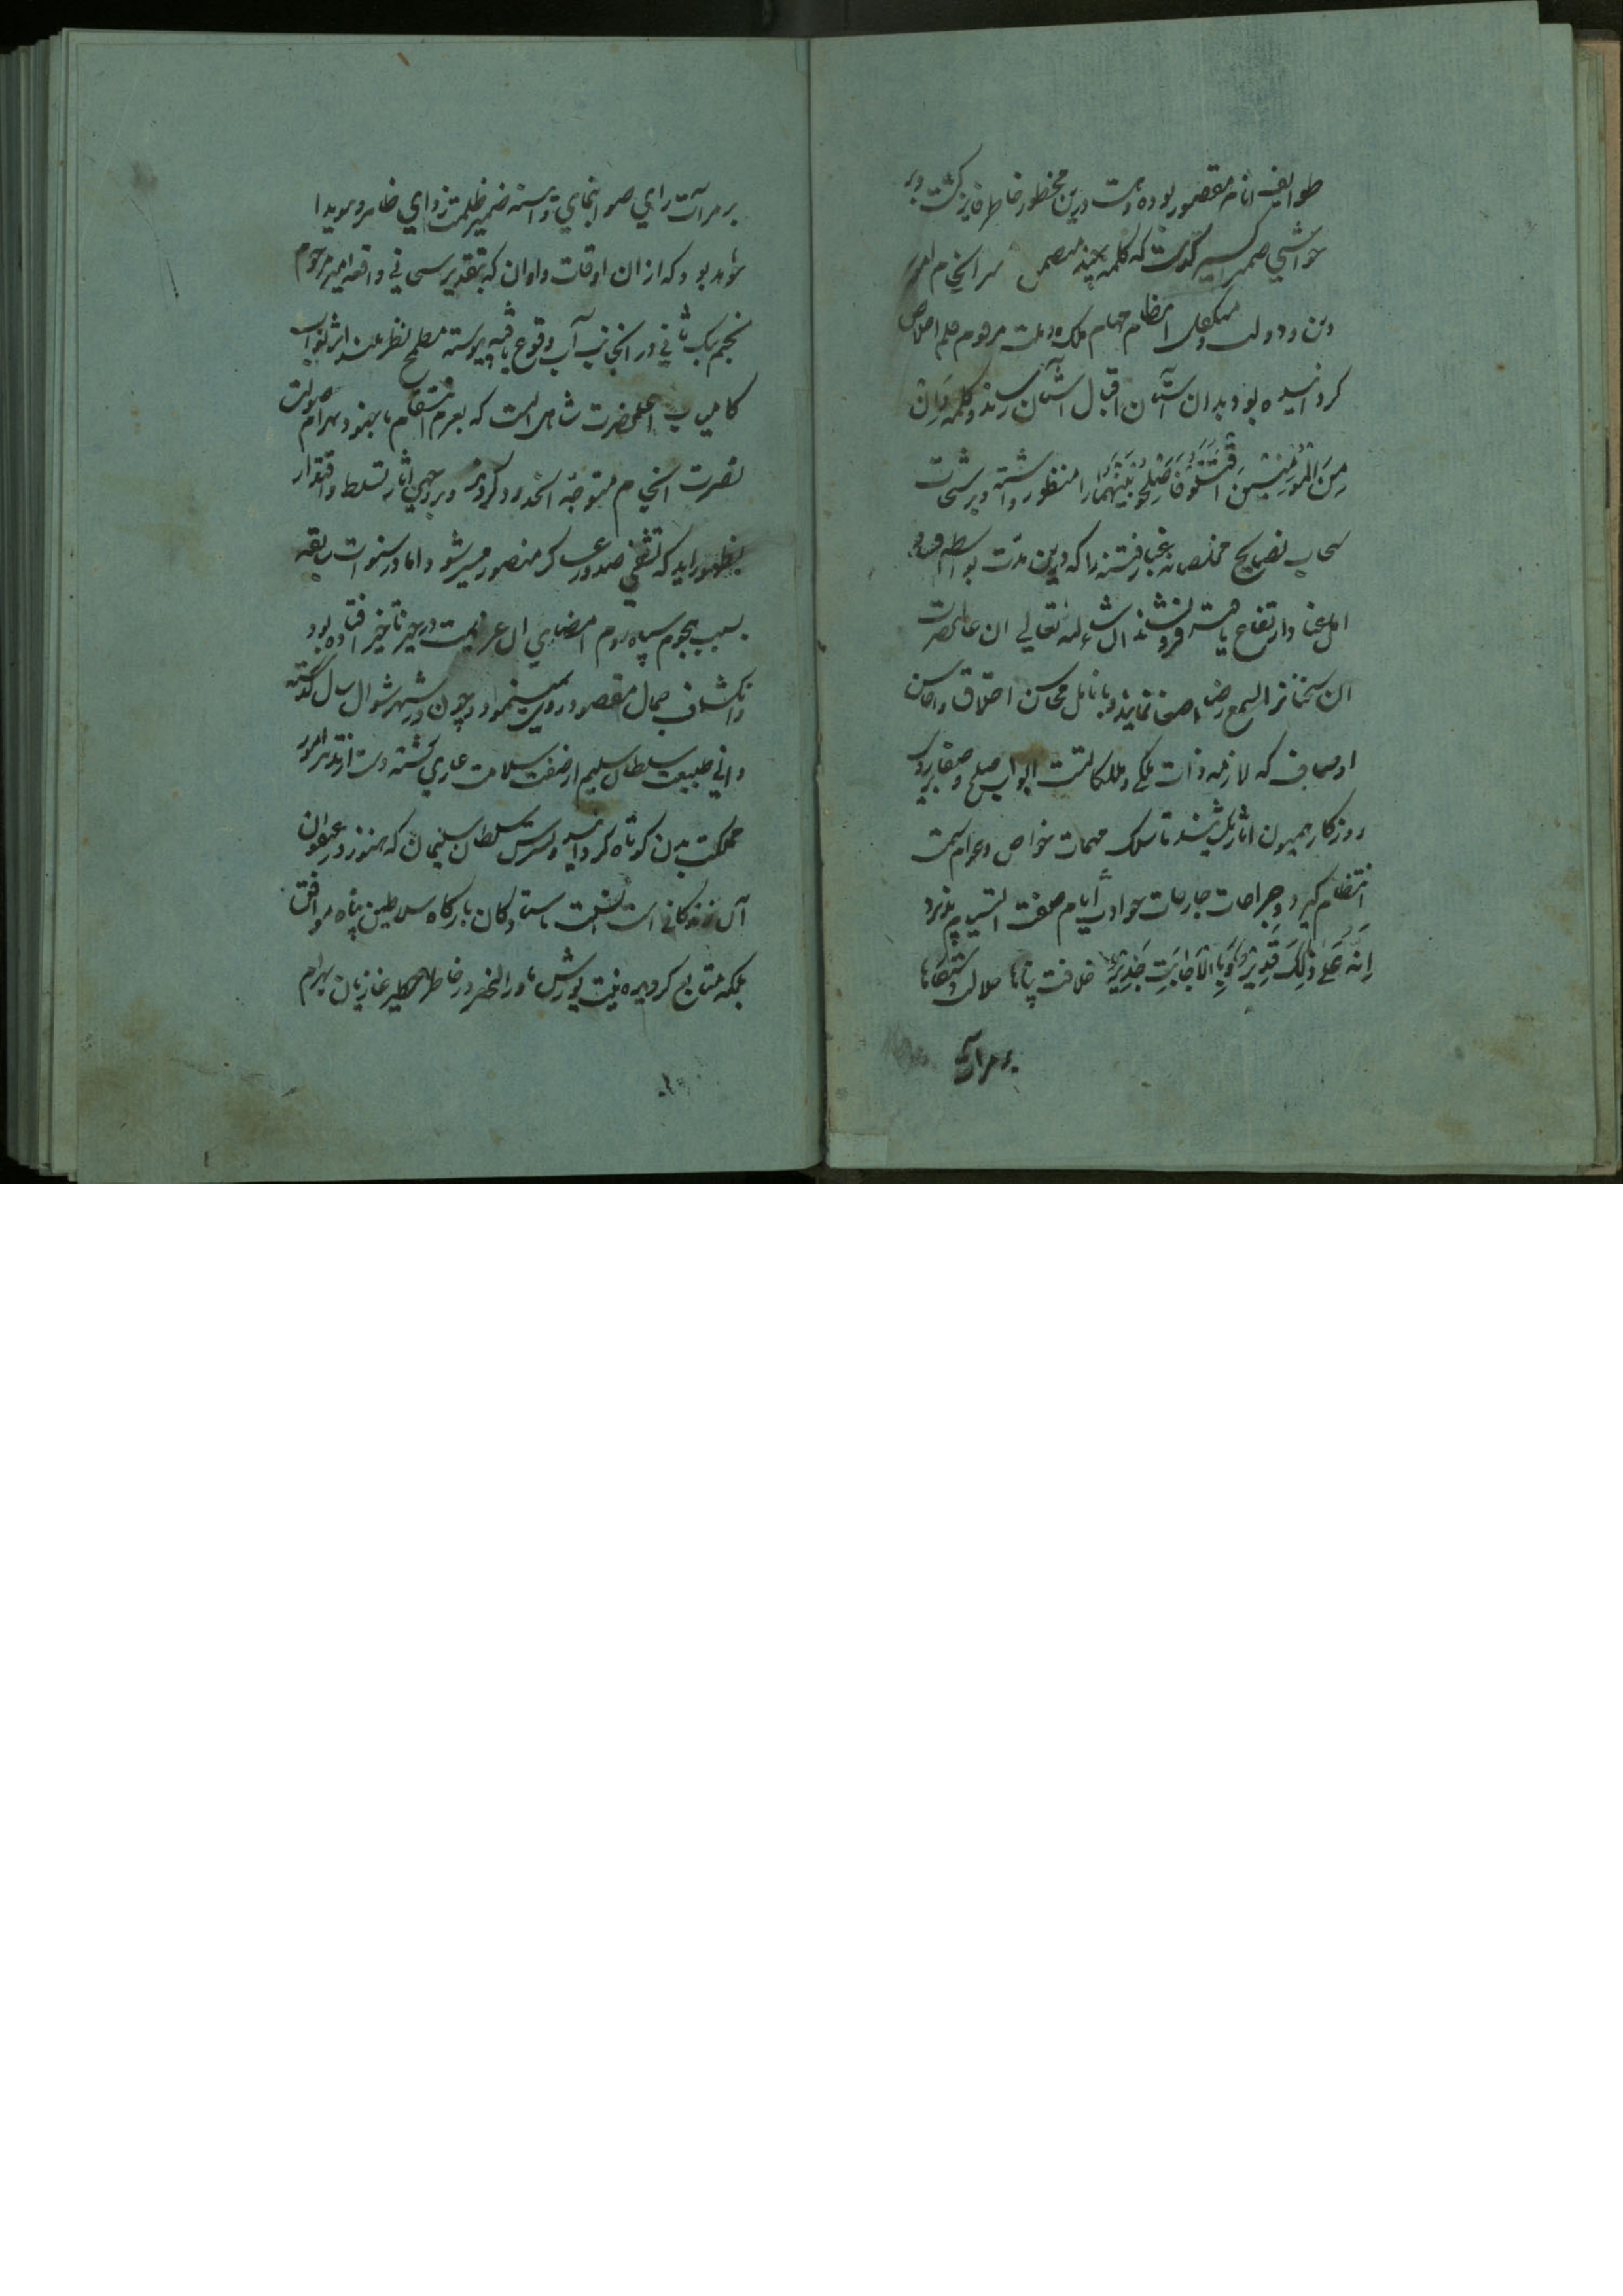 طوایف انام مقصور بوده است درین مخطور خاطر فایز گشت و بر
حواشی ضمیر اکسیر که کلمه چند متضمن سرانجام امور
دین و دولت و متکفل انتظام مهام ملک و ملت مرقوم قلم اخلاص
کردانیده بود بدان آستان اقبال آشیان رساند و کلمه وان
مِنَ الْمُؤْمِنِینَ اقْتَتَلُوا فَاصْلِحُوا بَیْنَهُمَا را منظور داشته و برشحات
سحاب نصایح مخلصانه غبار فتنه را که درین مدت بواسطه
اهل عناد ارتفاع یافته فرو نشاند ان شاء الله تعالی ان عالیحضرت
این سخنانرا بسمع رضا اصغا نمایند و بانامل محاسن اخلاق و احاسن
اوصاف که لازمه ذات ملکی ملکات است ابواب صلح و صفا بر روی
روزکار همیون اثار بکشایند تا سلک مهمات خواص و عوام سمت
انتظام کیرد و جراحات جارحات حوادث ایام صفت التیام پذیرد
اِنَّهُ عَلی ذلِکَ قَدِیرٌ وَبِالاِجابَتِ جَدِیرٌ خلافت پناها جلالت دستکاها
بر مرات
بر مرات رای صوابنمای و آینه ضمیر ظلمت زدای ظاهر و هویدا
خواهد بود که از ان اوقات و اوان که بتقدیر سبحانی واقعه امیر مرحوم
نجم بیک ثانی در انجانب آب وقوع یافته پیوسته مطمح نظر بلند اثر نواب
کامیاب اعلیحضرت شاهی انست که بعزم انتقام با جنود بهرام صولت
نصرت انجام متوجه انحدود کردند و بر وجهی اثار تسلط و اقتدار
بظهور اید که تشفی صدور عساکر منصور میسر شود اما در سنوات سابقه
بسبب هجوم سپاه روم امضای ان عزیمت در حیز تاخیر افتاده بود
و انکشاف جمال مقصود روی نمینمود و چون در شهر شوال سال گذشته
وانی طبیعت سلطان سلیم از صفت سلامت عاری کشته دست از تدبیر امور
مملکت بدن کوتاه کردانید و پسرش سلطان سلیمان که هنوز در عنفوان
آن زندکانی است با ایستادکان بارکاه سلاطین پناه موافق
بلکه متابع کردیده نیت یورش ماوراالنهر در خاطر خطیر غازیان بهرام